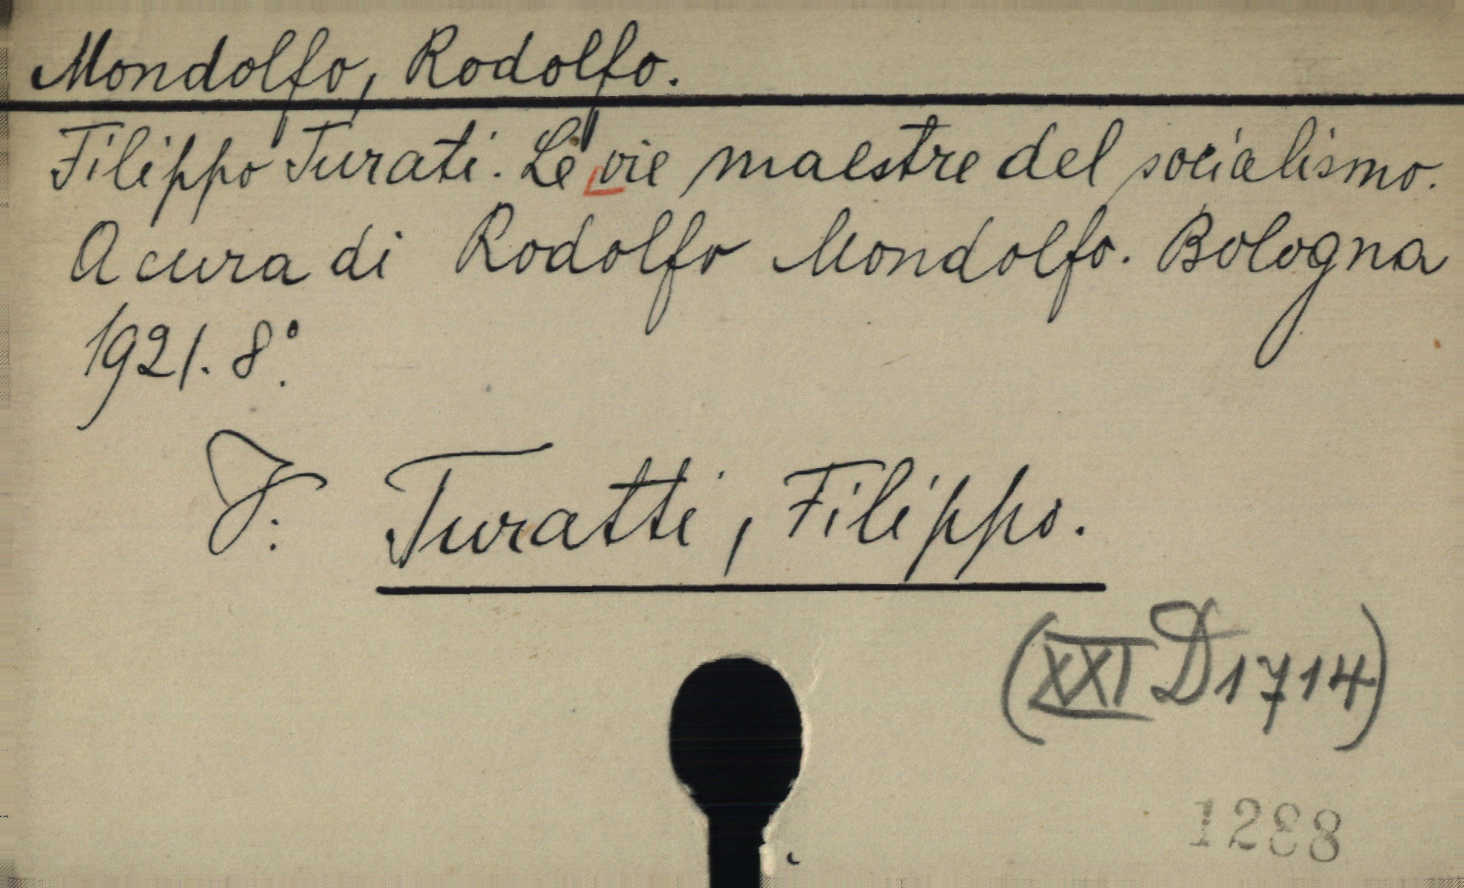 Mondolfo, Rodolfo.
Filippo Turati. Le vie maestre del socialismo.
A cura di Rodolfo Mondolfo. Bologna
1921. 8°.
V. Turatti, Filippo.
(XXI D 1714)
1288